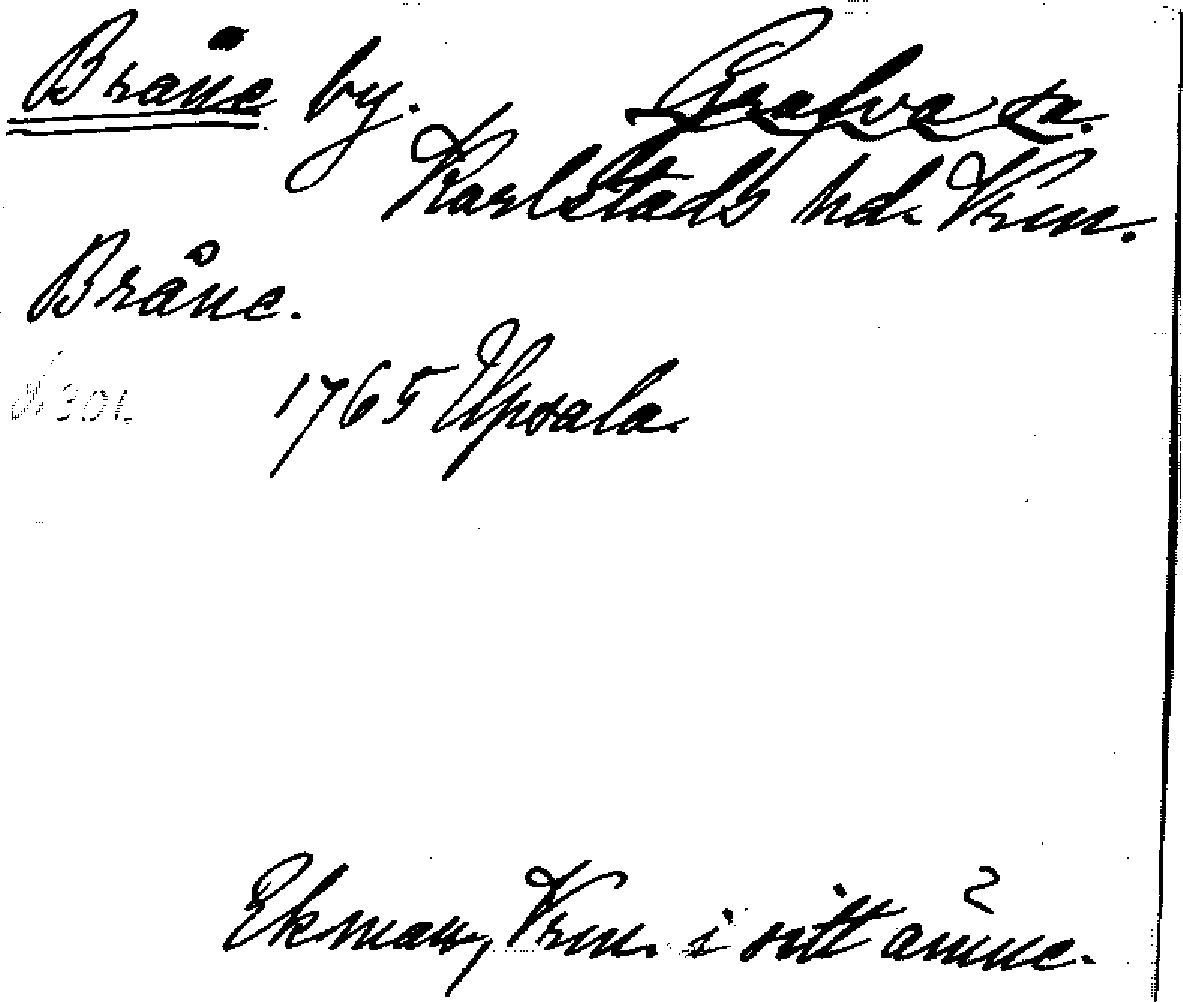 Bråne by. Grafva sn.
Karlstads hd. Vrm.
Bråne.
301. 1765 Upsala.
Ekman, Vrm. i sitt ämne.